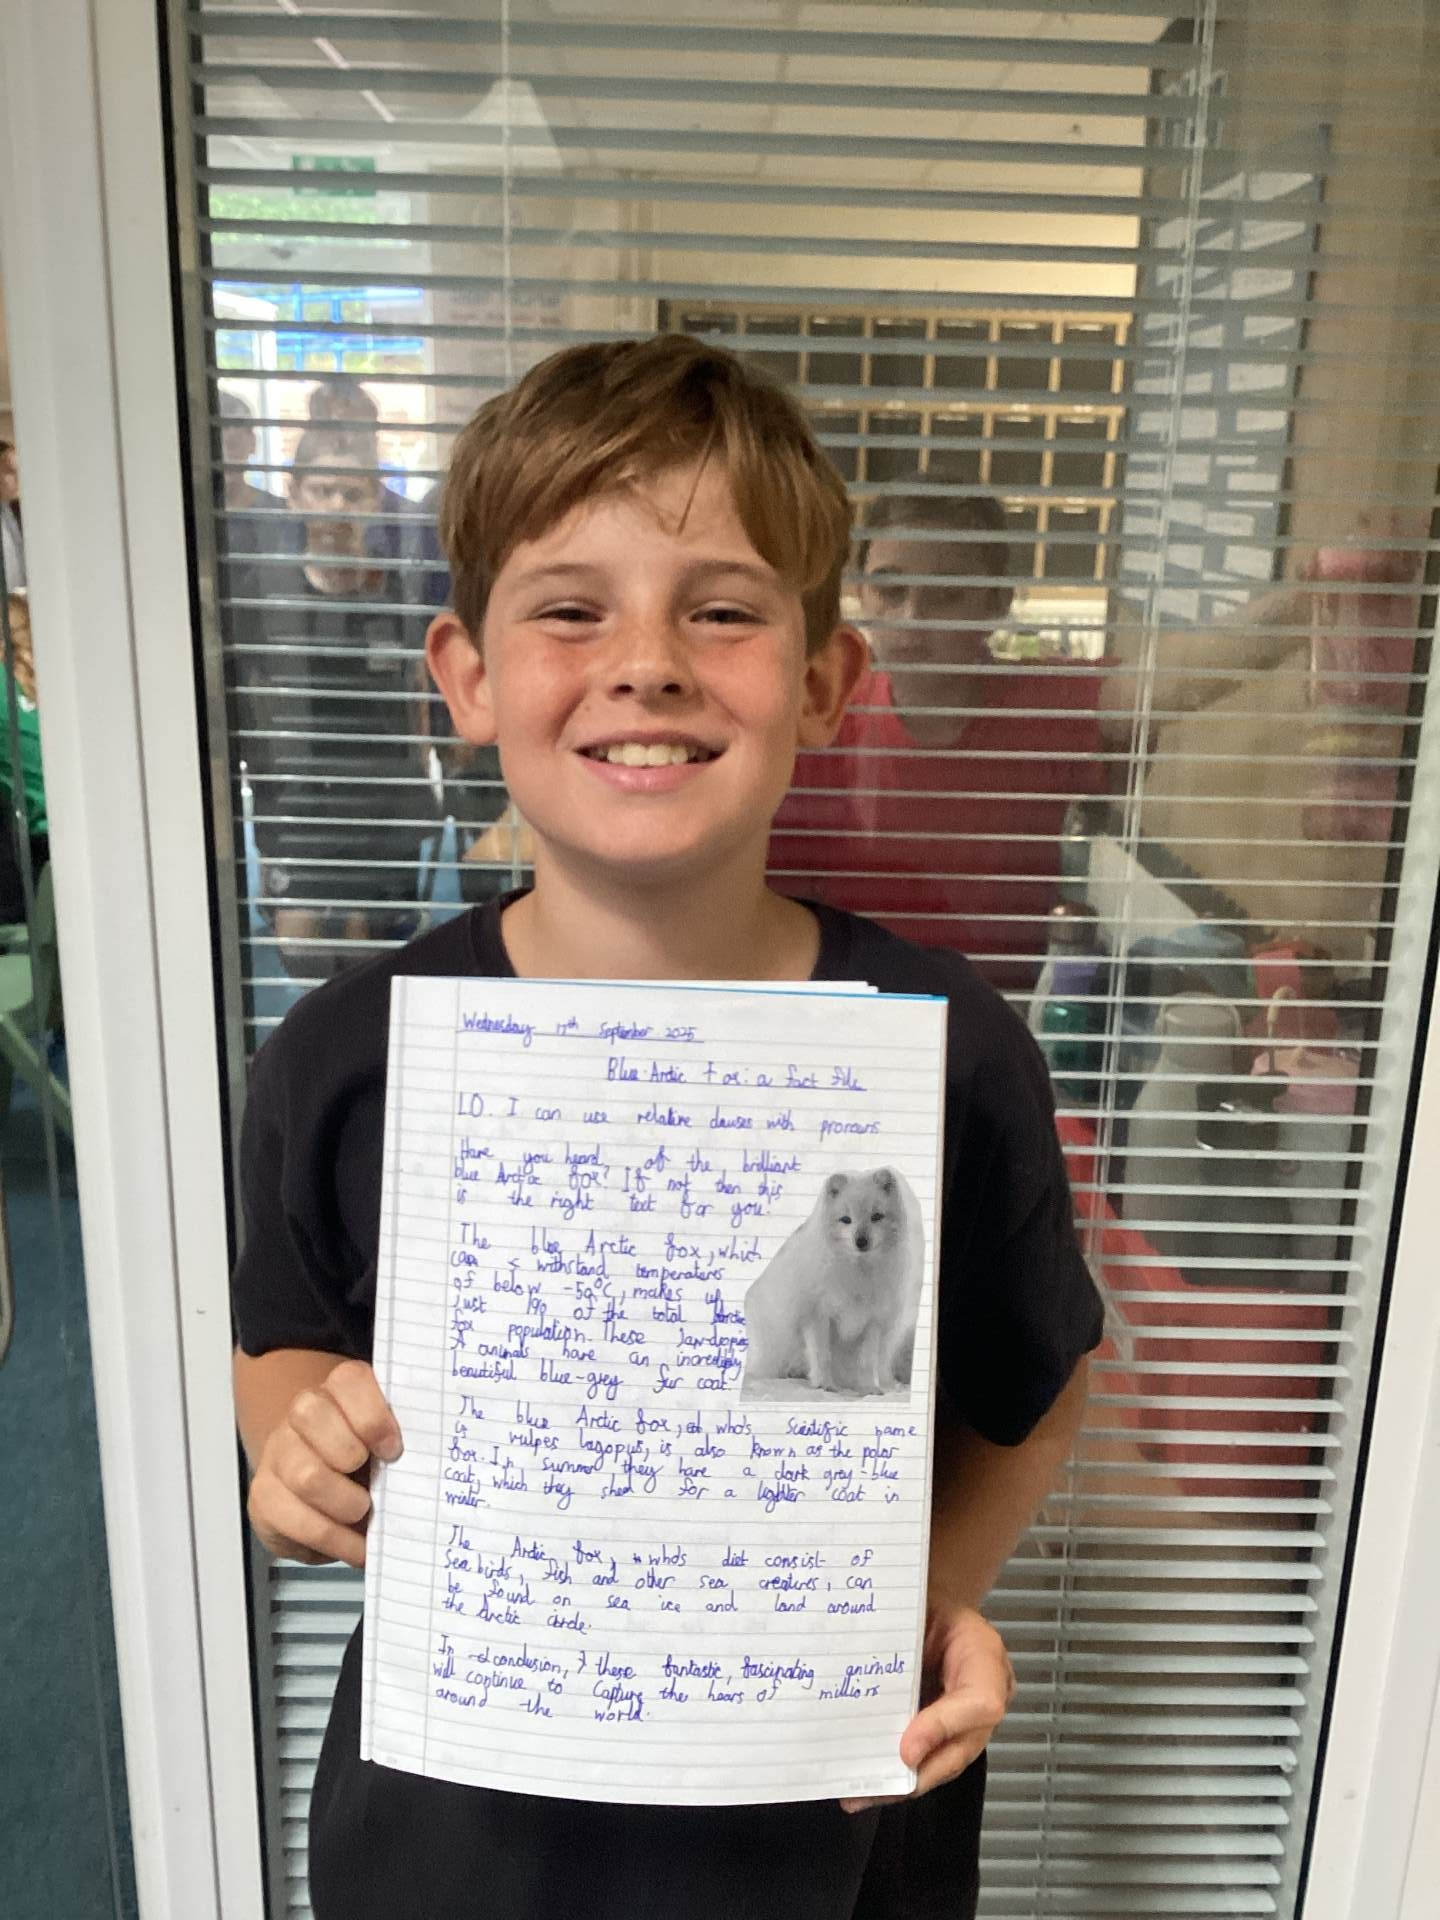 Wednesday 17th September 2025
Blue Arctic Fox: a fact file
LO. I can use relative clauses with pronouns
Have you heard of the brilliant
blue Arctic fox? If not then this
is the right text for you.
The blue Arctic fox, which
can withstand temperatures
of below -50°C, makes up
just 1% of the total Arctic
fox population. These jaw-dropping
animals have an incredibly
beautiful blue-grey fur coat.
The blue Arctic fox, who's scientific name
is vulpes lagopus, is also known as the polar
fox. In summer they have a dark grey-blue
coat, which they shed for a lighter coat in
winter.
The Arctic fox, who's diet consist of
Sea birds, fish and other sea creatures, can
be found on sea ice and land around
the Arctic circle.
In conclusion, these fantastic, fascinating animals
will continue to capture the hears of millions
around the world.